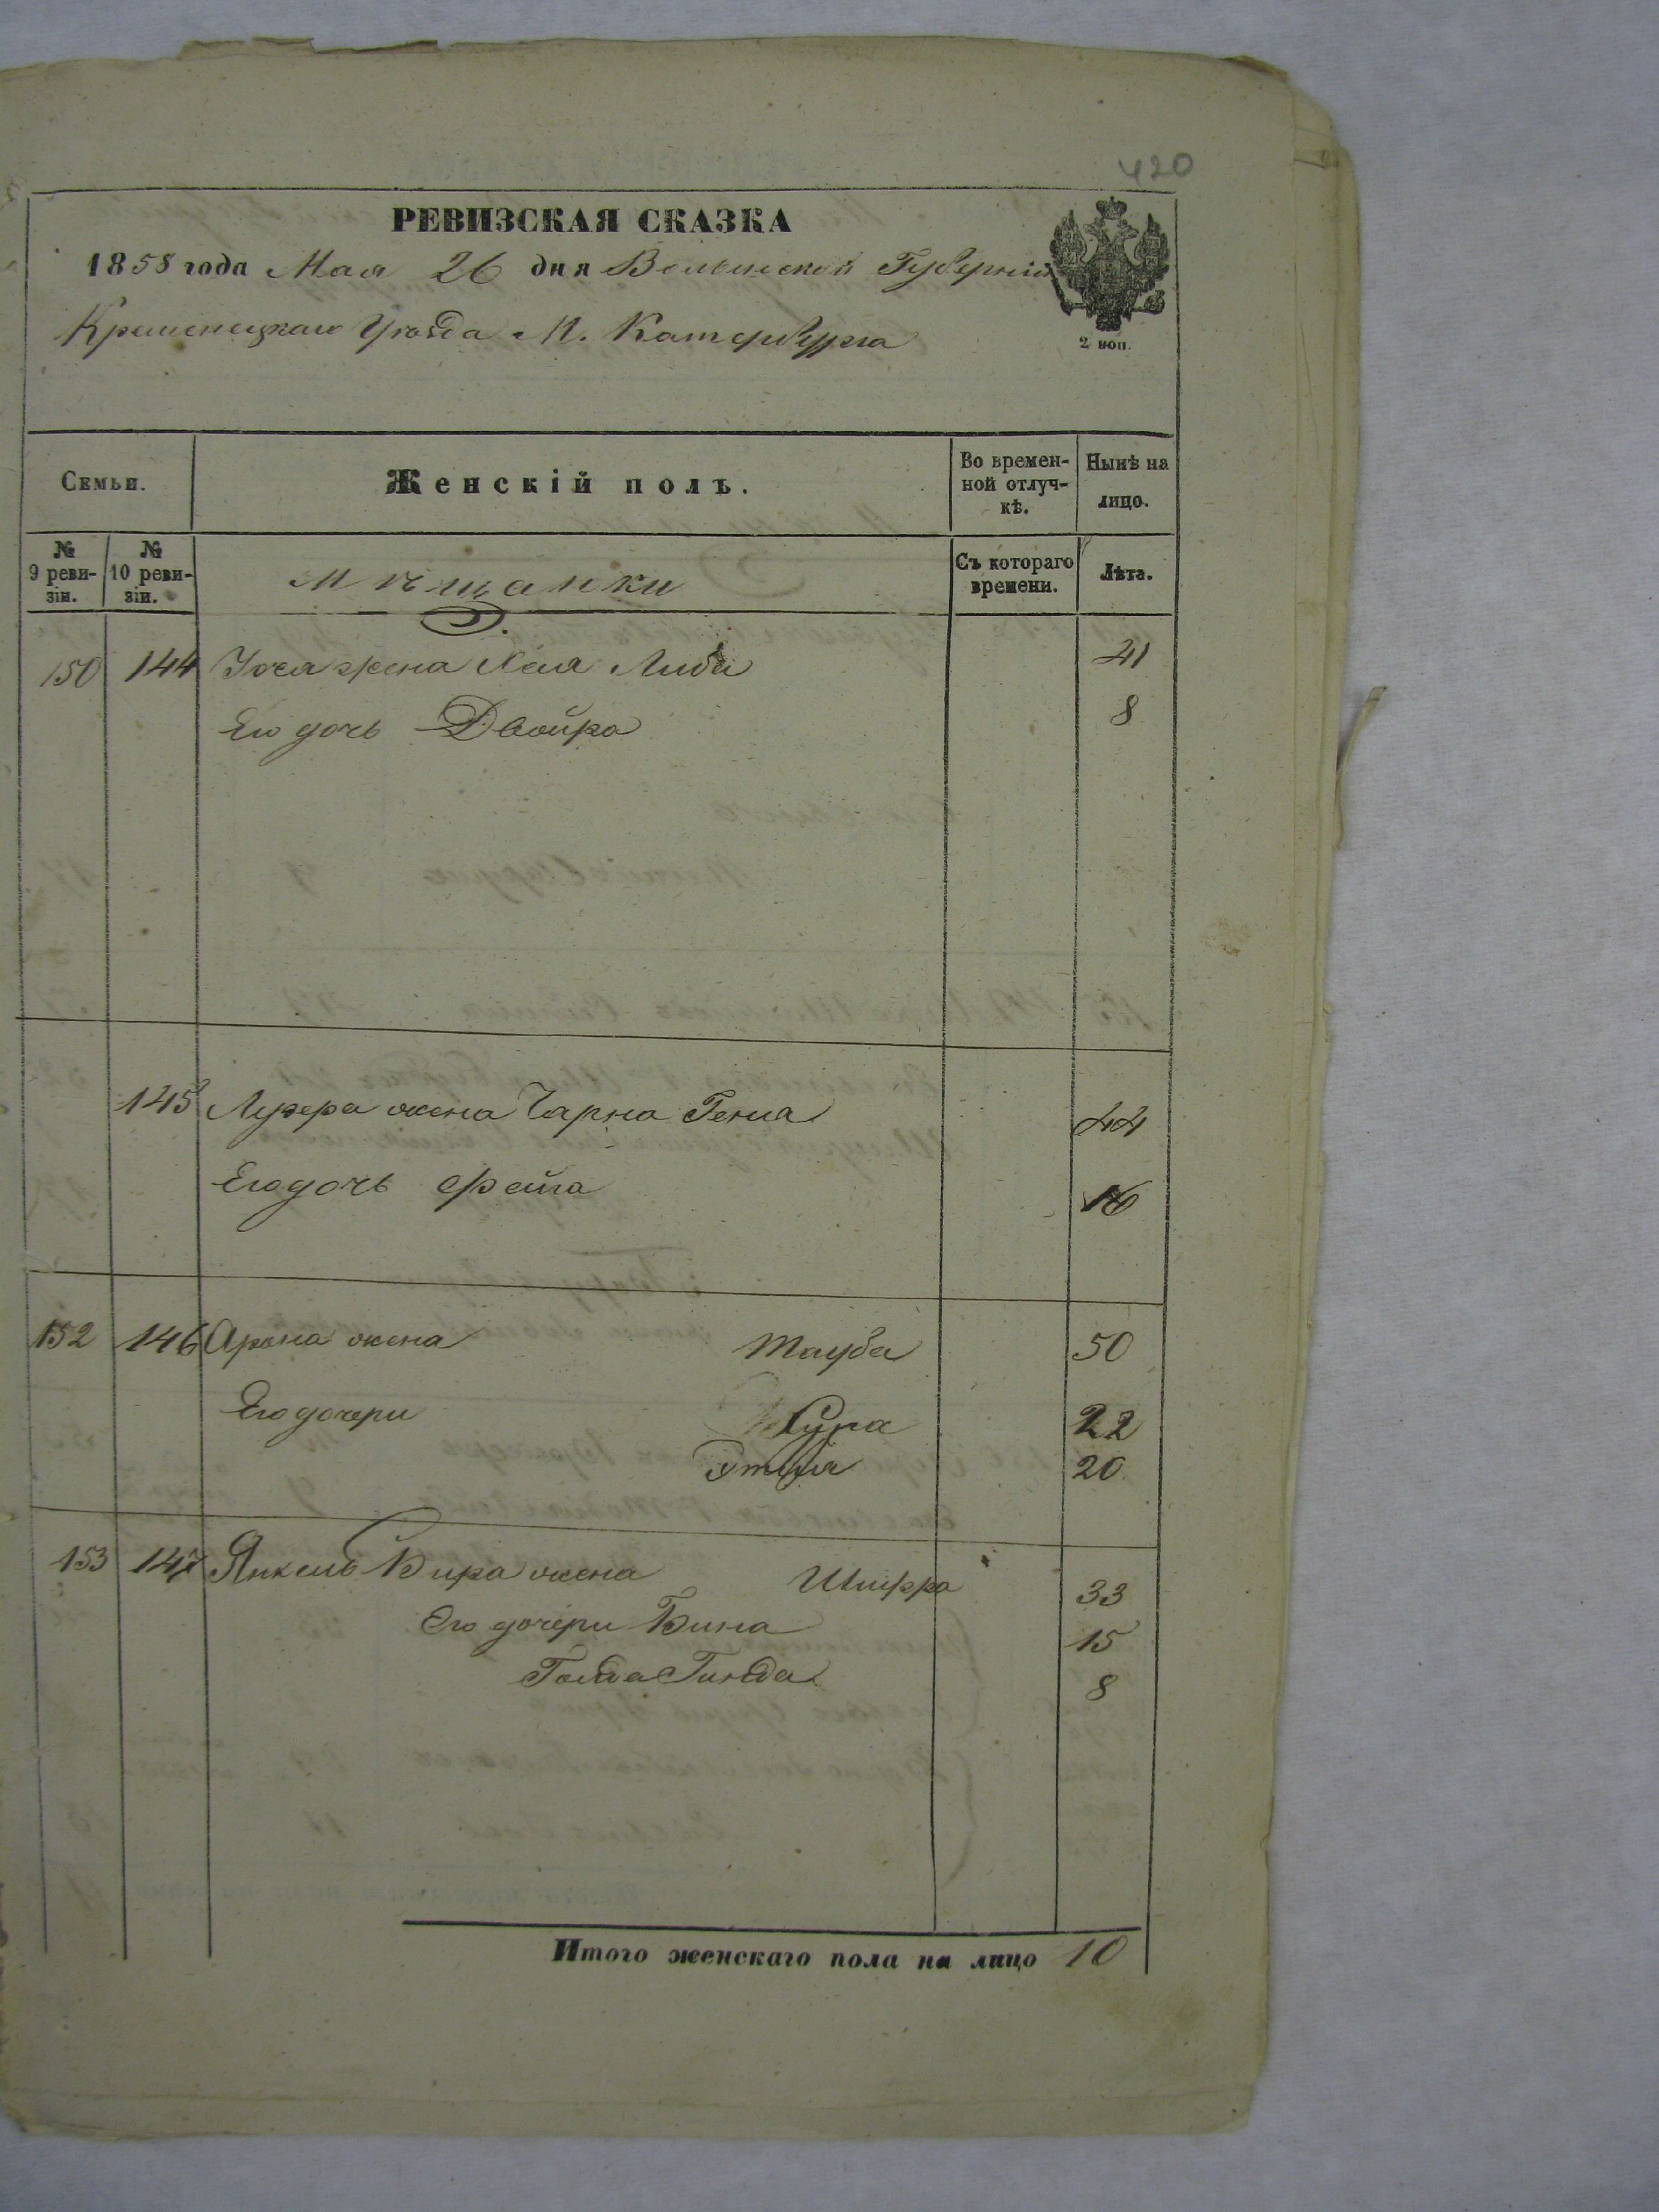 420
РЕВИЗСКАЯ СКАЗКА
1858 года Мая 26 дня Волынской Губерніи
Кременецкаго Уѣзда М. Катербурга
2 коп.
Семьи.
Женскій полъ.
Во времен-
ной отлуч-
кѣ.
Нынѣ на
лицо.
№
9 реви-
зіи.
№
10 реви-
зіи.
Мѣщанки
Съ котораго
времени.
Лѣта.
150 144 жена Хая Либа 41
Его дочь Двойра 8
145 Лузера жена Чарна Геня 44
Его дочь Фейга 16
152 146 Арона жена Тауба 50
Его дочери Сура 22
20
153 147 Янкель Бира жена Шифра 33
Его дочери Бина 15
Голда Гинда 8
Итого женскаго пола на лицо 10